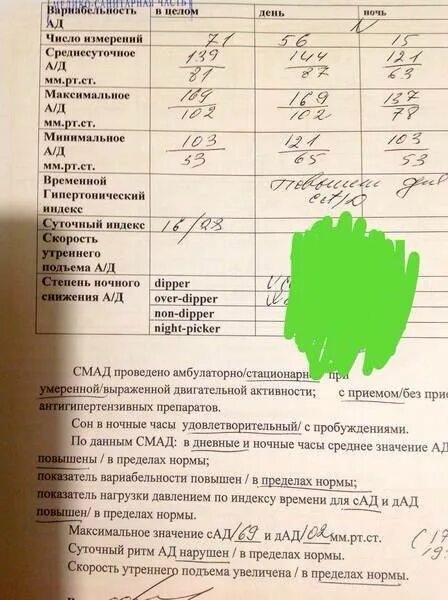 МЕДИКО-САНИТАРНАЯ ЧАСТЬ
Вариабельность АД в целом день ночь
N
Число измерений 71 56 15
Среднесуточное А/Д мм.рт.ст. 139/81 144/87 121/63
Максимальное А/Д мм.рт.ст. 169/102 169/102 137/78
Минимальное А/Д мм.рт.ст. 103/53 121/65 103/53
Временной Гипертонический индекс повышен для сА/Д
Суточный индекс 16/28
Скорость утреннего подъема А/Д
Степень ночного снижения А/Д dipper
over-dipper
non-dipper
night-picker
СМАД проведено амбулаторно/стационарно при
умеренной/выраженной двигательной активности; с приемом/без прие
антигипертензивных препаратов.
Сон в ночные часы удовлетворительный/ с пробуждениями.
По данным СМАД: в дневные и ночные часы среднее значение АД
повышены / в пределах нормы;
показатель вариабельности повышен / в пределах нормы;
показатель нагрузки давлением по индексу времени для сАД и дАД
повышен/ в пределах нормы.
Максимальное значение сАД/169 и дАД/102 мм.рт.ст. (17
Суточный ритм АД нарушен / в пределах нормы. 19
Скорость утреннего подъема увеличена / в пределах нормы.